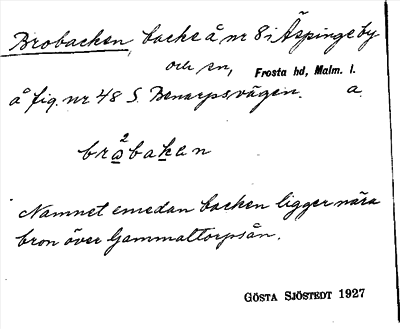 Brobacken, backe å nr 8 i Äspinge by
och en, Frosta hd, Malm. l.
å fig. nr 48 S. Benarpsvägen. a.
2
brɷbaken
Namnet emedan backen ligger nära
bron över Gammaltorpsån.
GÖSTA SJÖSTEDT 1927